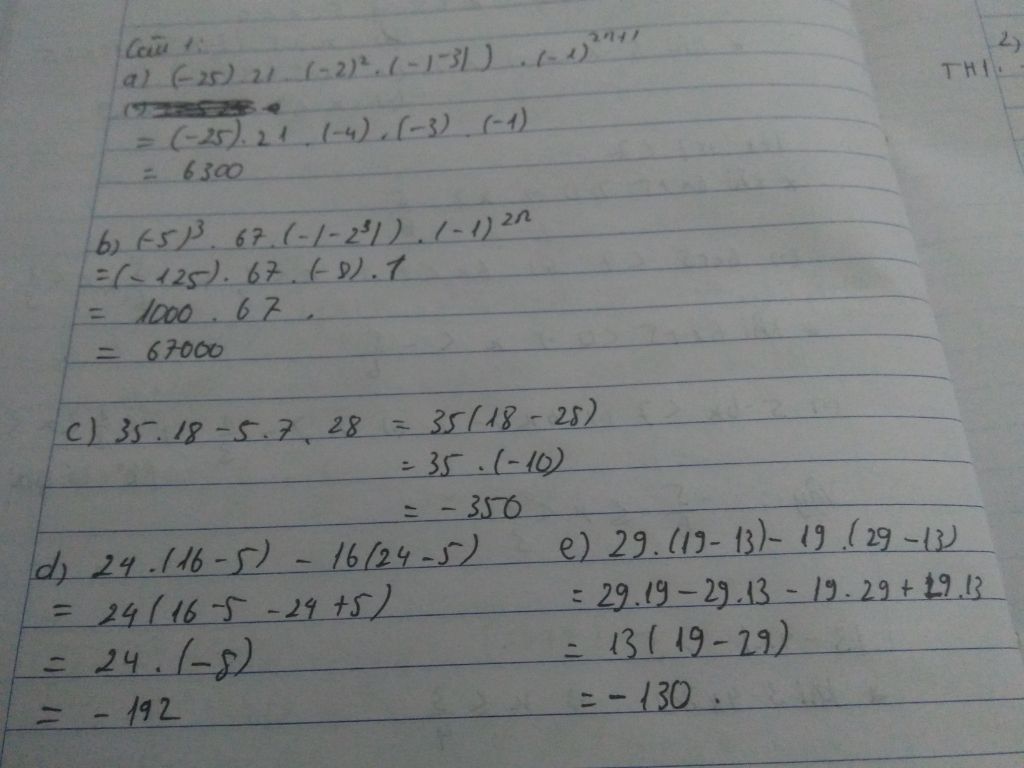 Câu 1:
a) (-25). 21 . (-2)². (-|-3|) . (-1)²ⁿ⁺¹
= (-25). 21 . (-4) . (-3) . (-1)
= 6300
b) (-5)³ . 67 . (-|-2³|) . (-1)²ⁿ
= (-125). 67 . (-8) . 1
= 1000 . 67 .
= 67000
c) 35.18 - 5.7.28 = 35(18 - 28)
= 35 . (-10)
= - 350
d) 24 .(16 - 5) - 16(24 - 5)
= 24(16 -5 -24 +5)
= 24 . (-8)
= - 192
e) 29.(19 - 13) - 19 .(29 - 13)
= 29.19 - 29.13 - 19.29 + 19.13
= 13( 19 - 29)
= - 130 .
2)
TH1: